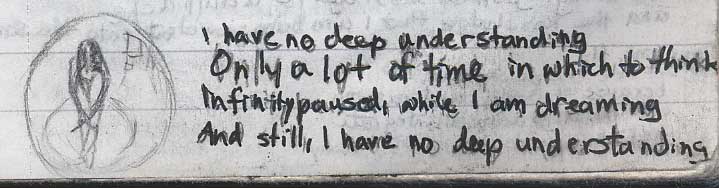 I have no deep understanding
Only a lot of time in which to think
Infinity paused, while I am dreaming
And still, I have no deep understanding